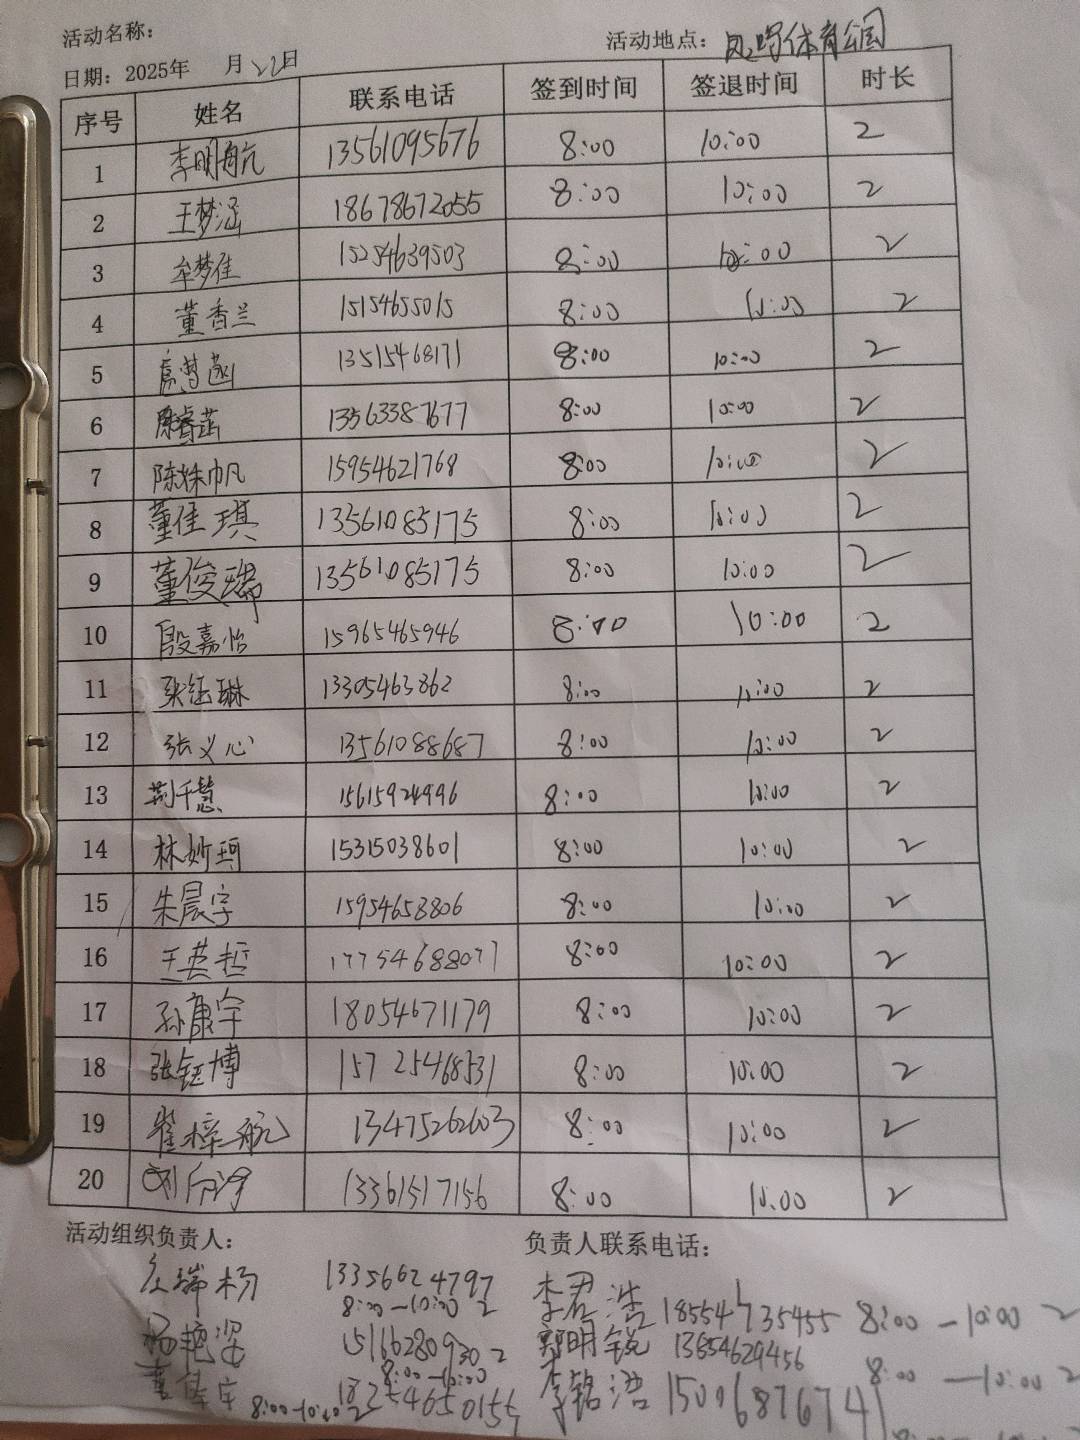 活动名称： 活动地点：凤鸣体育公园
日期：2025年 月22日
序号 姓名 联系电话 签到时间 签退时间 时长
1 李明航 13561095676 8:00 10:00 2
2 王梦涵 18678672055 8:00 10:00 2
3 牟梦佳 15254639503 8:00 10:00 2
4 董香兰 15154655015 8:00 10:00 2
5 13515468171 8:00 10:00 2
6 睿 13563387677 8:00 10:00 2
7 陈姝帆 15954621768 8:00 10:00 2
8 董佳琪 13561085175 8:00 10:00 2
9 董俊瑞 13561085175 8:00 10:00 2
10 殷嘉怡 15965465946 8:00 10:00 2
11 张钰琳 13305463862 8:00 10:00 2
12 张义心 13561088687 8:00 10:00 2
13 荆千慧 15615924996 8:00 10:00 2
14 林妙珂 15315038601 8:00 10:00 2
15 朱晨宇 15954653806 8:00 10:00 2
16 王英哲 17754688077 8:00 10:00 2
17 孙康宇 18054671179 8:00 10:00 2
18 张钰博 15725468531 8:00 10:00 2
19 崔梓航 13475262603 8:00 10:00 2
20 刘 13361517156 8:00 10:00 2
活动组织负责人： 负责人联系电话：
瑞杨 13356624797 李君浩 18554735455 8:00—10:00 2
8:00—10:00 2
杨艳 15166280930 2 郭明锐 13654629456
8:00—10:00 8:00—10:00 2
董佳 8:00—10:00 2 李铭浩 15006876741